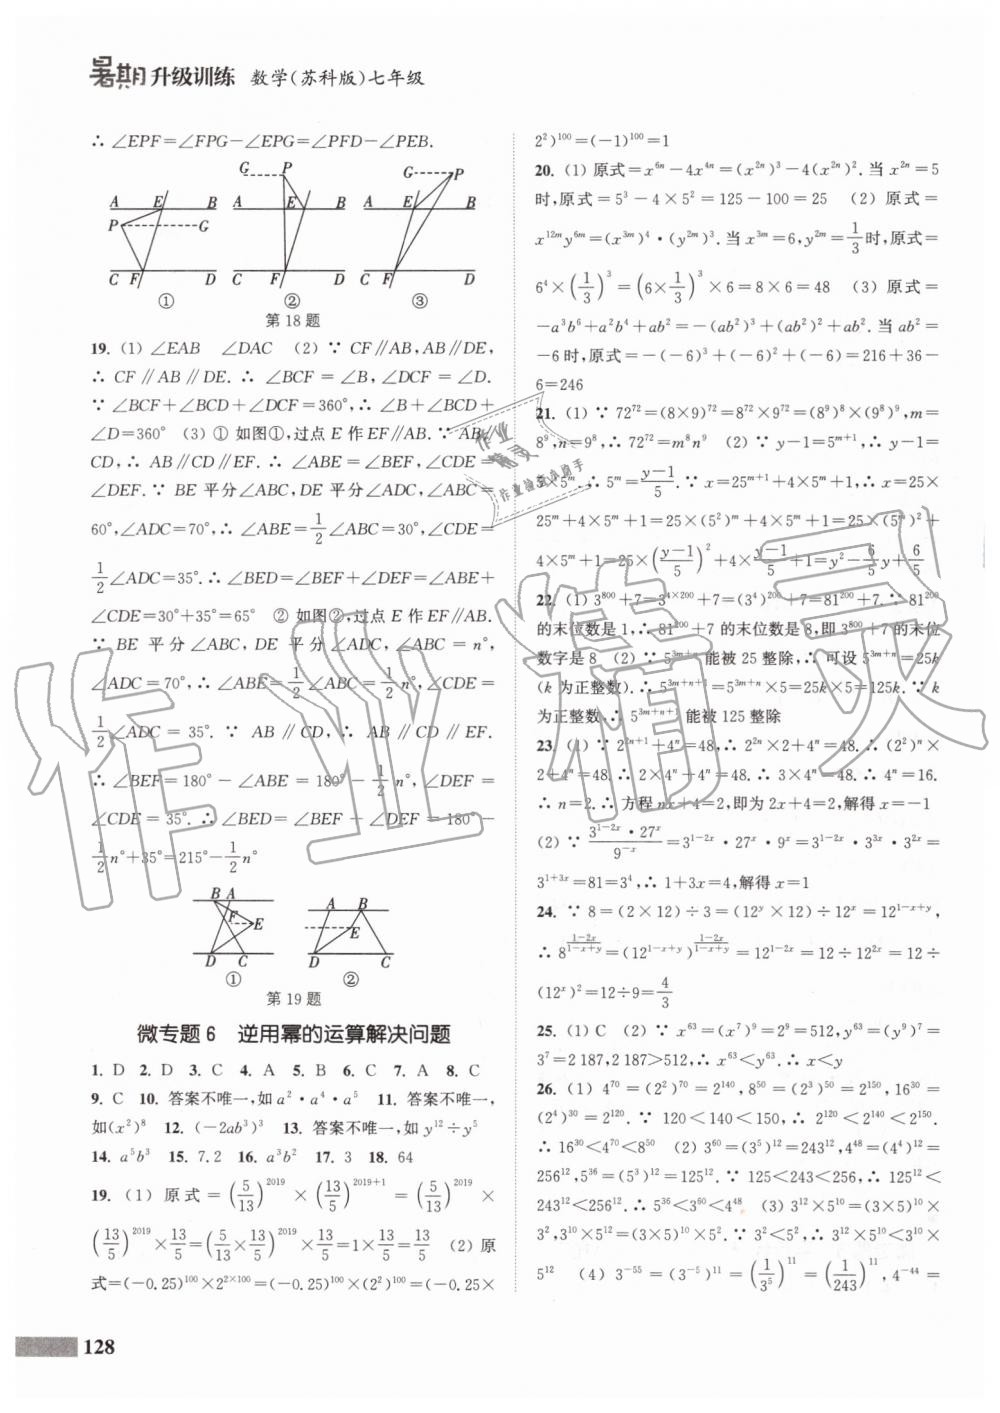 暑期升级训练 数学(苏科版)七年级
∴ ∠EPF=∠FPG-∠EPG=∠PFD-∠PEB.
G P G P
A E B A E B A E B
P G
C F D C F D C F D
① ② ③
第18题
19. (1) ∠EAB ∠DAC (2) ∵ CF∥AB,AB∥DE,
∴ CF∥AB∥DE. ∴ ∠BCF=∠B,∠DCF=∠D.
∵ ∠BCF+∠BCD+∠DCF=360°,∴ ∠B+∠BCD+
∠D=360° (3) ① 如图①,过点E作EF∥AB. ∵ AB∥
CD,∴ AB∥CD∥EF. ∴ ∠ABE=∠BEF,∠CDE=
∠DEF. ∵ BE平分∠ABC,DE平分∠ADC,∠ABC=
60°,∠ADC=70°,∴ ∠ABE=1/2∠ABC=30°,∠CDE=
1/2∠ADC=35°. ∴ ∠BED=∠BEF+∠DEF=∠ABE+
∠CDE=30°+35°=65° ② 如图②,过点E作EF∥AB.
∵ BE平分∠ABC,DE平分∠ADC,∠ABC=n°,
∠ADC=70°,∴ ∠ABE=1/2∠ABC=1/2n°,∠CDE=
1/2∠ADC=35°. ∵ AB∥CD,∴ AB∥CD∥EF.
∴ ∠BEF=180°-∠ABE=180°-1/2n°,∠DEF=
∠CDE=35°. ∴ ∠BED=∠BEF+∠DEF=180°-
1/2n°+35°=215°-1/2n°
B A A B
F E E
D C D C
① ②
第19题
微专题6 逆用幂的运算解决问题
1. D 2. D 3. C 4. A 5. B 6. C 7. A 8. C
9. C 10. 答案不唯一,如a²·a⁴·a⁵ 11. 答案不唯一,
如(x²)⁸ 12. (-2ab³)³ 13. 答案不唯一,如y¹²÷y⁵
14. a⁵b³ 15. 7.2 16. a³b² 17. 3 18. 64
19. (1) 原式=(5/13)²⁰¹⁹×(13/5)²⁰¹⁹⁺¹=(5/13)²⁰¹⁹×
(13/5)²⁰¹⁹×13/5=(5/13×13/5)²⁰¹⁹×13/5=1×13/5=13/5 (2) 原
式=(-0.25)¹⁰⁰×2²ˣ¹⁰⁰=(-0.25)¹⁰⁰×(2²)¹⁰⁰=(-0.25×
2²)¹⁰⁰=(-1)¹⁰⁰=1
20. (1) 原式=x^(6n)-4x^(4n)=(x^(2n))³-4(x^(2n))². 当x^(2n)=5
时,原式=5³-4×5²=125-100=25 (2) 原式=
x^(12m)y^(6m)=(x^(3m))⁴·(y^(2m))³. 当x^(3m)=6,y^(2m)=1/3时,原式=
6⁴×(1/3)³=(6×1/3)³×6=8×6=48 (3) 原式=
-a³b⁶+a²b⁴+ab²=-(ab²)³+(ab²)²+ab². 当ab²=
-6时,原式=-(-6)³+(-6)²+(-6)=216+36-
6=246
21. (1) ∵ 72⁷²=(8×9)⁷²=8⁷²×9⁷²=(8⁹)⁸×(9⁸)⁹,m=
8⁹,n=9⁸,∴ 72⁷²=m⁸n⁹ (2) ∵ y-1=5^(m+1),∴ y-1=
5×5^m. ∴ 5^m=(y-1)/5. ∵ x=25^(m+1)+4×5^m+1,∴ x=25×
25^m+4×5^m+1=25×(5²)^m+4×5^m+1=25×(5^m)²+
4×5^m+1=25×((y-1)/5)²+4×(y-1)/5+1=y²-6/5y+6/5
22. (1) 3⁸⁰⁰+7=3^(4×200)+7=(3⁴)²⁰⁰+7=81²⁰⁰+7. ∵ 81²⁰⁰
的末位数是1,∴ 81²⁰⁰+7的末位数是8,即3⁸⁰⁰+7的末位
数字是8 (2) ∵ 5^(3m+n)能被25整除,∴ 可设5^(3m+n)=25k
(k为正整数). ∴ 5^(3m+n+1)=5^(3m+n)×5=25k×5=125k. ∵ k
为正整数,∴ 5^(3m+n+1)能被125整除
23. (1) ∵ 2^(2n+1)+4^n=48,∴ 2^(2n)×2+4^n=48. ∴ (2²)^n×
2+4^n=48. ∴ 2×4^n+4^n=48. ∴ 3×4^n=48. ∴ 4^n=16.
∴ n=2. ∴ 方程nx+4=2,即为2x+4=2,解得x=-1
(2) ∵ (3^(1-2x)·27^x)/9^(-x)=3^(1-2x)·27^x·9^x=3^(1-2x)·3^(3x)·3^(2x)=
3^(1+3x)=81=3⁴,∴ 1+3x=4,解得x=1
24. ∵ 8=(2×12)÷3=(12^y×12)÷12^x=12^(1-x+y),
∴ 8^((1-2x)/(1-x+y))=(12^(1-x+y))^((1-2x)/(1-x+y))=12^(1-2x)=12÷12^(2x)=12÷
(12^x)²=12÷9=4/3
25. (1) C (2) ∵ x⁶³=(x⁷)⁹=2⁹=512,y⁶³=(y⁹)⁷=
3⁷=2 187,2 187>512,∴ x⁶³<y⁶³. ∴ x<y
26. (1) 4⁷⁰=(2²)⁷⁰=2¹⁴⁰,8⁵⁰=(2³)⁵⁰=2¹⁵⁰,16³⁰=
(2⁴)³⁰=2¹²⁰. ∵ 120<140<150,∴ 2¹²⁰<2¹⁴⁰<2¹⁵⁰.
∴ 16³⁰<4⁷⁰<8⁵⁰ (2) 3⁶⁰=(3⁵)¹²=243¹²,4⁴⁸=(4⁴)¹²=
256¹²,5³⁶=(5³)¹²=125¹². ∵ 125<243<256,∴ 125¹²<
243¹²<256¹². ∴ 5³⁶<3⁶⁰<4⁴⁸ (3) 3¹²×5¹⁰=(3×5)¹⁰×
3²,3¹⁰×5¹²=(3×5)¹⁰×5². ∵ 3²<5²,∴ 3¹²×5¹⁰<3¹⁰×
5¹² (4) 3⁻⁵⁵=(3⁻⁵)¹¹=(1/3⁵)¹¹=(1/243)¹¹,4⁻⁴⁴=
128
作业精灵
作业检查小助手
作业精灵